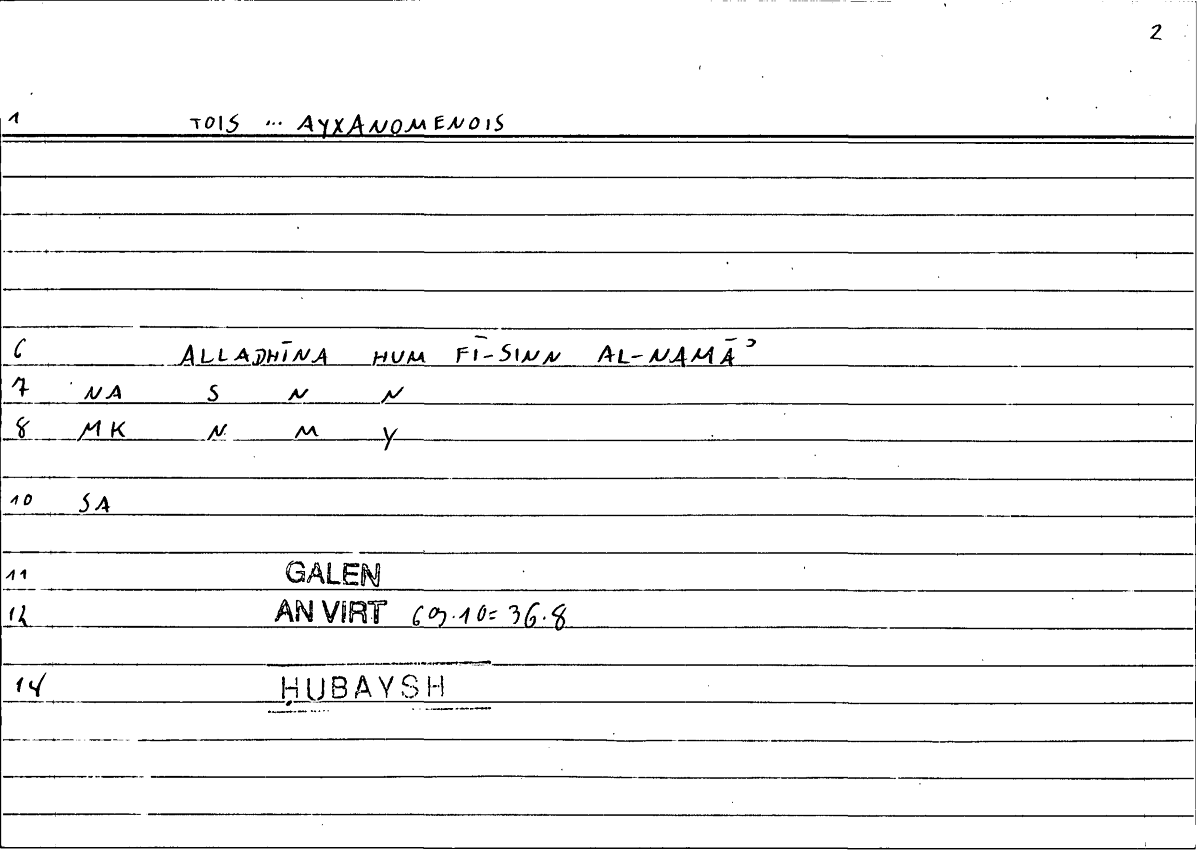 2
1 TOIS ... AYXANOMENOIS
6 ALLADHĪNA HUM FĪ-SINN AL-NAMĀʾ
7 NA S N N
8 MK N M Y
10 SA
11 GALEN
12 AN VIRT 69.10=36.8
14 ḤUBAYSH